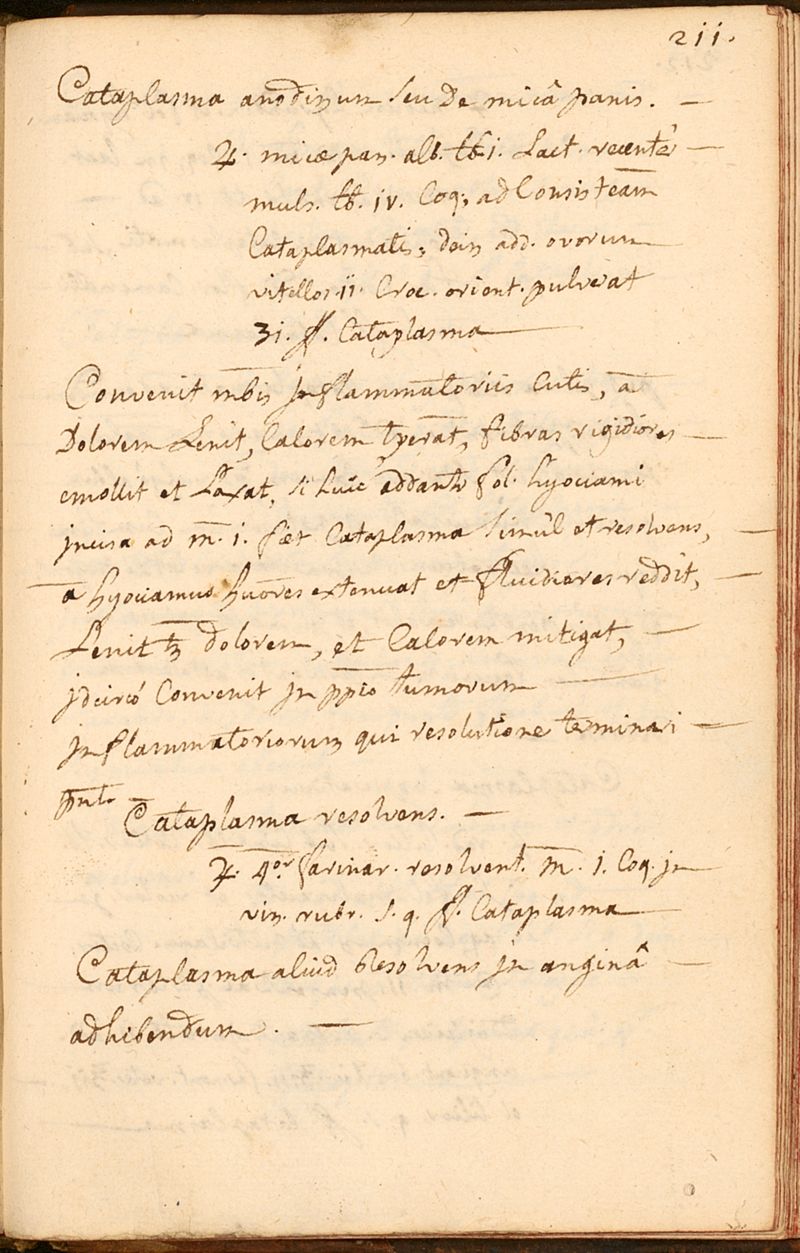 211.
Cataplasma anodinum seu De micâ panis. —
♃. micæ pan. alb. ℔ i. Lact. recenter —
muls. ℔. iv. Coq; ad Consisteām
Cataplasmatis, dein add. ovorum
vitellos ii. Croc. orient. pulverat
ʒi. ff. Cataplasma —
Convenit m̄bis Jnflammatoriis Cutis, a͞
Dolorem Lenit, Calorem tp̄erat, fibras rigidiores —
emollit et Laxat, si huic addantr fol. hyociami
jncisa ad m̄. i. fiet Cataplasma simul et resolvens, —
— a͞ hyociamus hūores extenuat et fluidiores reddit, —
Lenit tm̄ dolorem, et Calorem mitigat, —
jdcircò Convenit jn pp̄io tumorum —
jnflammatoriorum qui resolutione terminari —
pn̄t.
Cataplasma resolvens. —
♃. 4or farinar. resolvent. m̄. i. Coq. jn
vin. rubr. s. q. ff. Cataplasma —
Cataplasma aliud Resolvens jn anginâ —
adhibendum. —